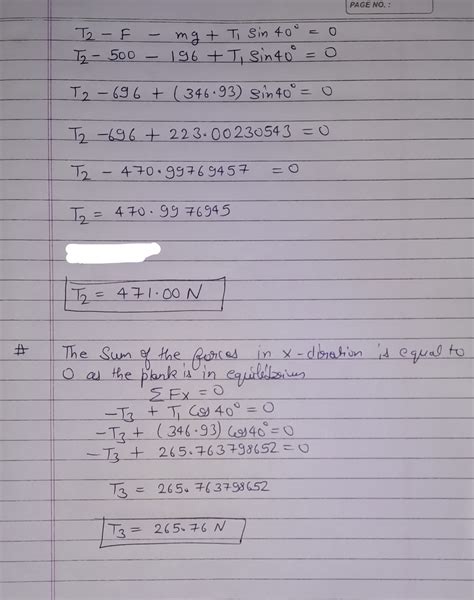 PAGE NO. :
T₂ - F - mg + T₁ Sin 40° = 0
T₂ - 500 - 196 + T₁ Sin 40° = 0
T₂ - 696 + (346.93) Sin 40° = 0
T₂ - 696 + 223.00230543 = 0
T₂ - 470.99769457 = 0
T₂ = 470.9976945
T₂ = 471.00 N
# The Sum of the forces in x-diration is equal to
0 as the plank is in equilibrium
ΣFx = 0
-T₃ + T₁ Cos 40° = 0
-T₃ + (346.93) Cos 40° = 0
-T₃ + 265.763798652 = 0
T₃ = 265.763798652
T₃ = 265.76 N